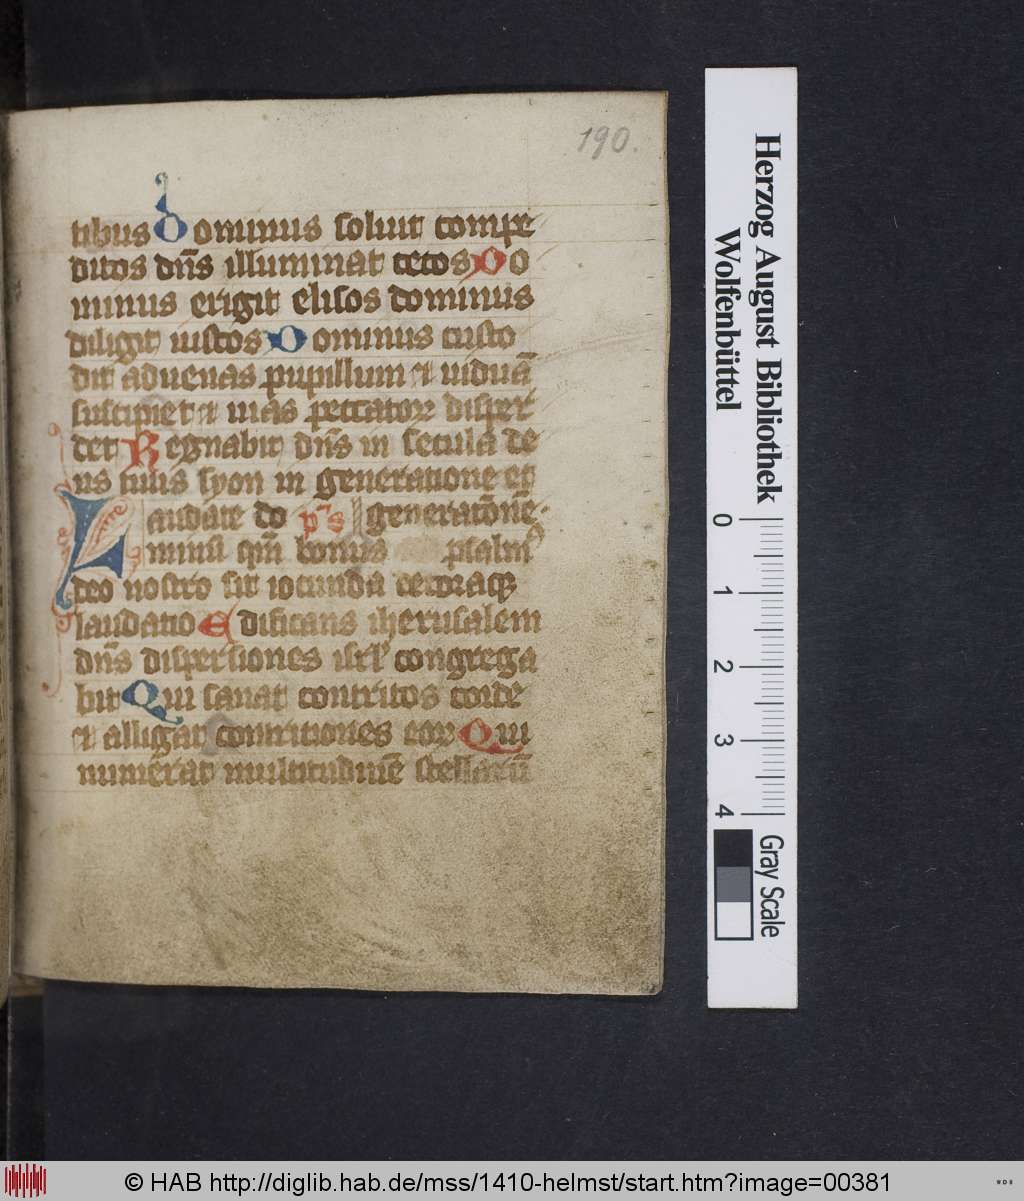 190.
tibus Dominus soluit compe
ditos dn̄s illuminat cecos Do
minus erigit elisos dominus
diligit iustos Dominus custo
dit aduenas pupillum et uiduā
suscipiet et uias peccatoꝝ disper
det Regnabit dn̄s in secula de
us tuus syon in generatione et
Laudate do p̄s generatōnē.
minū qm̄ bonus psalmꝰ
deo nostro sit iocunda decoraqꝫ
laudatio Edificans iherusalem
dn̄s dispersiones isrl̓ congrega
bit Qui sanat contritos corde
et alligat contritiones eoꝝ Qui
numerat multitudinē stellarū
Herzog August Bibliothek
Wolfenbüttel
0 1 2 3 4
Gray Scale
© HAB http://diglib.hab.de/mss/1410-helmst/start.htm?image=00381